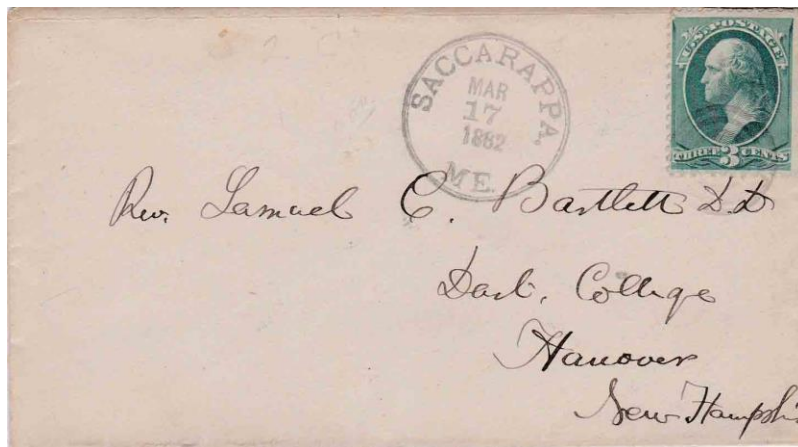 SACCARAPPA,
MAR
17
1882
ME.
U.S. POSTAGE
THREE 3 CENTS
Rev. Samuel C. Bartlett D.D
Dart. College
Hanover
New Hampshi